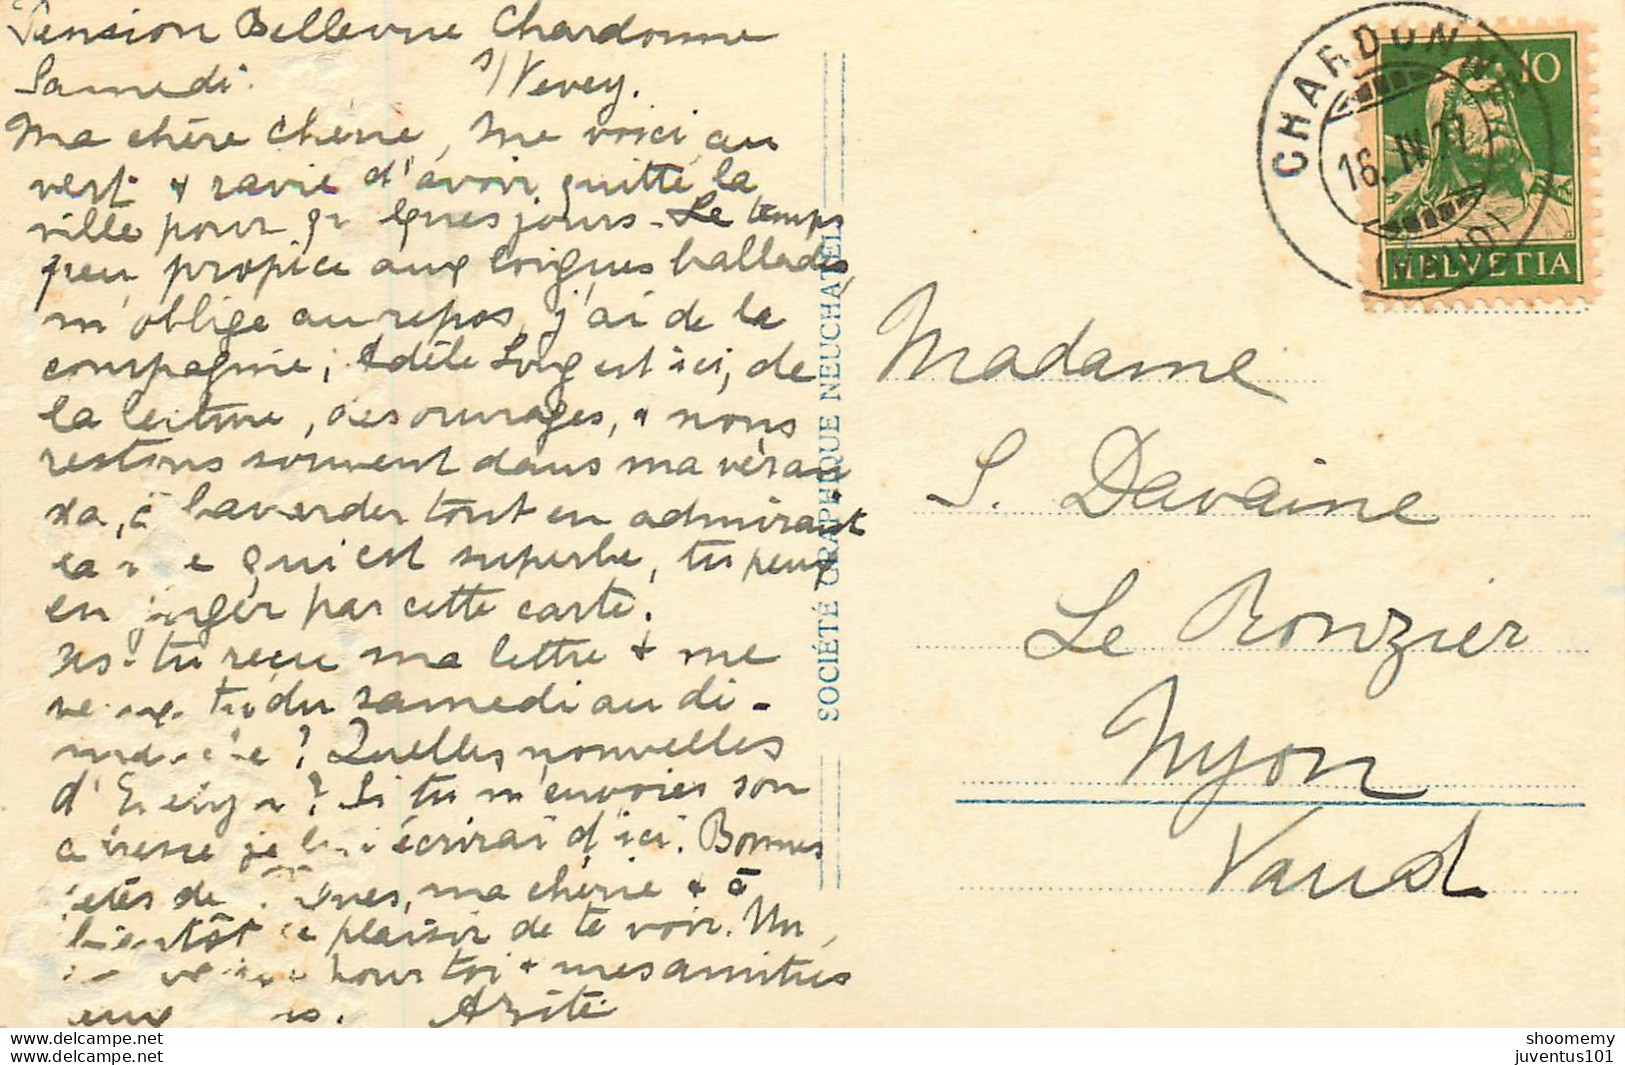 Pension Bellevue Chardonne
Samedi. s/Vevey.
Ma chère chérie, me voici, au
vert & ravie d'avoir quitté la
ville pour quelques jours - Le temps
peu propice aux longues ballades,
m'oblige au repos, j'ai de la
compagnie, Adèle Long est ici, de
la lecture, des ouvrages, & nous
restons souvent dans ma véran
da, à bavarder tout en admirant
la vue qui est superbe, tu peux
en juger par cette carte.
As-tu reçu ma lettre & me
veux-tu du samedi au di-
manche? Quelles nouvelles
d'? Si tu m'envoies son
adresse je lui écrirai d'ici. Bonnes
fêtes de Pâques, ma chérie & à
bientôt le plaisir de te voir. Un
pour toi & mes amitiés
aux
SOCIÉTÉ GRAPHIQUE NEUCHATEL
CHARDONNE
16. IV. 27
(VAUD)
10
HELVETIA
Madame
S. Davaine
Le Ronzier
Nyon
Vaud
shoomemy
juventus101
juventus101